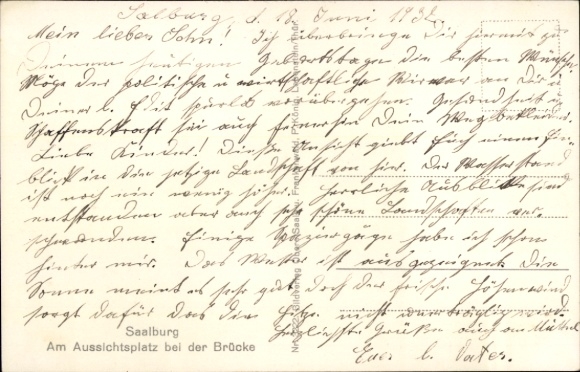 Saalburg, d. 18. Juni 1932.
Mein lieber Sohn! Ich überbringe Dir hiermit zu
Deinem heutigen Geburtstage die besten Wünsche.
Möge der politische u wirtschaftliche Wirrwar an Dir u
Deiner l. spurlos vorübergehen. Gesundheit u
Schaffenskraft sei auch fernerhin Dein Wegbekleider.
Liebe Kinder! Diese Ansicht giebt Euch einen Ein-
blick in die jetzige Landschaft von hier. Der Wasserstand
ist noch ein wenig höher. Herrliche Ausblicke sind
entstanden aber auch sehr schöne Landschaften ver-
schwunden. Einige Spaziergäge habe ich schon
hinter mir. Das Wetter ist ausgezeignet. Die
Sonne meint es sehr gut doch der frische Höhenwind
sorgt dafür das die Hitze nicht unerträglich wird.
Herzlichste Grüße auch an
Euer l. Vater.
Saalburg
Am Aussichtsplatz bei der Brücke